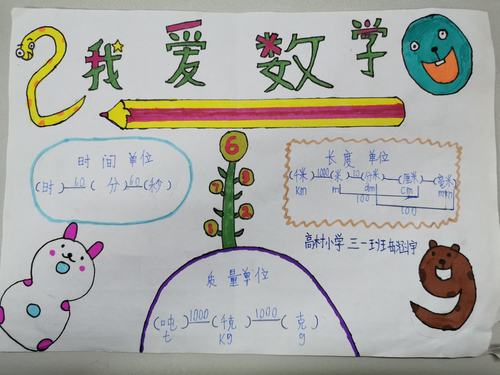 我爱数学
6
7 3
8 2
时间单位
(时) 60 (分) 60 (秒)
长度单位
(千米) 1000 (米) 10 (分米) (厘米) (毫米)
km m dm cm mm
100
100
高村小学 三一班
质量单位
(吨) 1000 (千克) 1000 (克)
t kg g
9